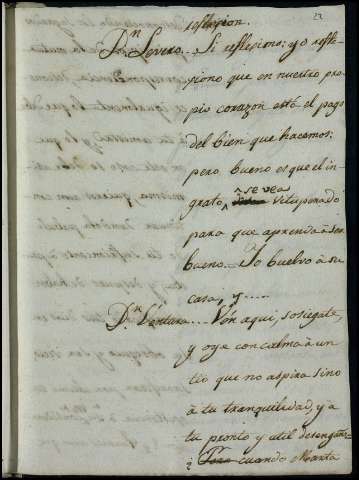 reflexion.
23
Dⁿ Severo... Si reflexiono: yo refle-
xiono que en nuestro pro-
pio corazon está el pago
del bien que hacemos;
pero bueno es que el in-
grato se vea vituperado
para que aprenda à ser
bueno. Yo buelvo à su
casa, y.....
Dⁿ Ventura... Ven aqui, sosiegate,
y oye con calma à un
tio que no aspira sino
à tu tranquilidad, y à
tu pronto y util desengaño.
¿Pero cuando Marta